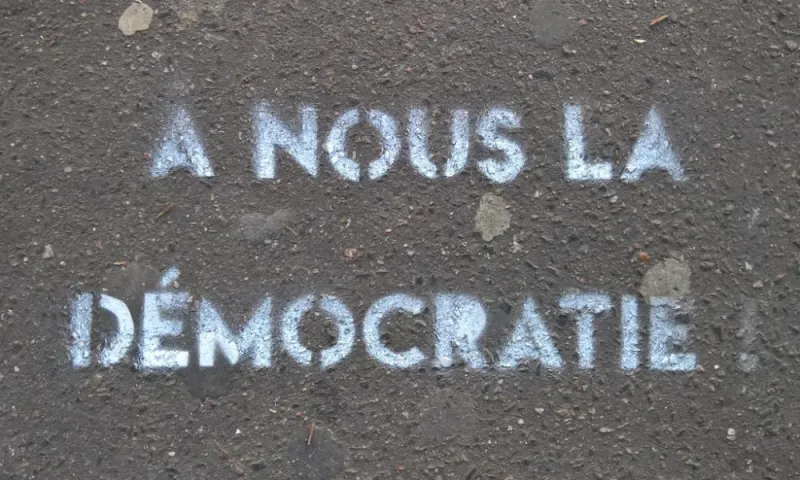 A NOUS LA
DÉMOCRATIE !